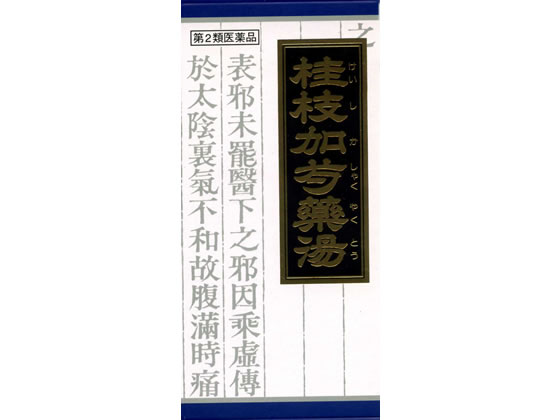 第2類医薬品
之
桂枝加芍薬湯
けいしかしゃくやくとう
表邪未罷醫下之邪因乘虛傳
於太陰裏氣不和故腹滿時痛